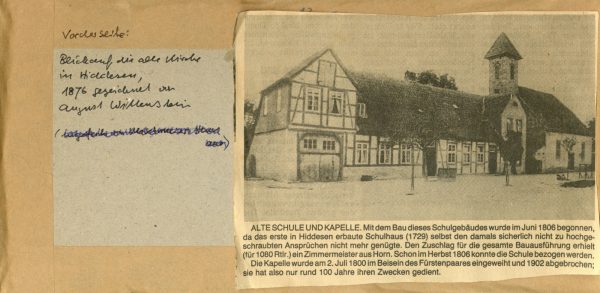 Vorderseite:
Blick auf die alte Kirche
in Hiddesen,
1876 gezeichnet von
August Wittenstein
ALTE SCHULE UND KAPELLE. Mit dem Bau dieses Schulgebäudes wurde im Juni 1806 begonnen,
da das erste in Hiddesen erbaute Schulhaus (1729) selbst den damals sicherlich nicht zu hochge-
schraubten Ansprüchen nicht mehr genügte. Den Zuschlag für die gesamte Bauausführung erhielt
(für 1080 Rtlr.) ein Zimmermeister aus Horn. Schon im Herbst 1806 konnte die Schule bezogen werden.
Die Kapelle wurde am 2. Juli 1800 im Beisein des Fürstenpaares eingeweiht und 1902 abgebrochen;
sie hat also nur rund 100 Jahre ihren Zwecken gedient.